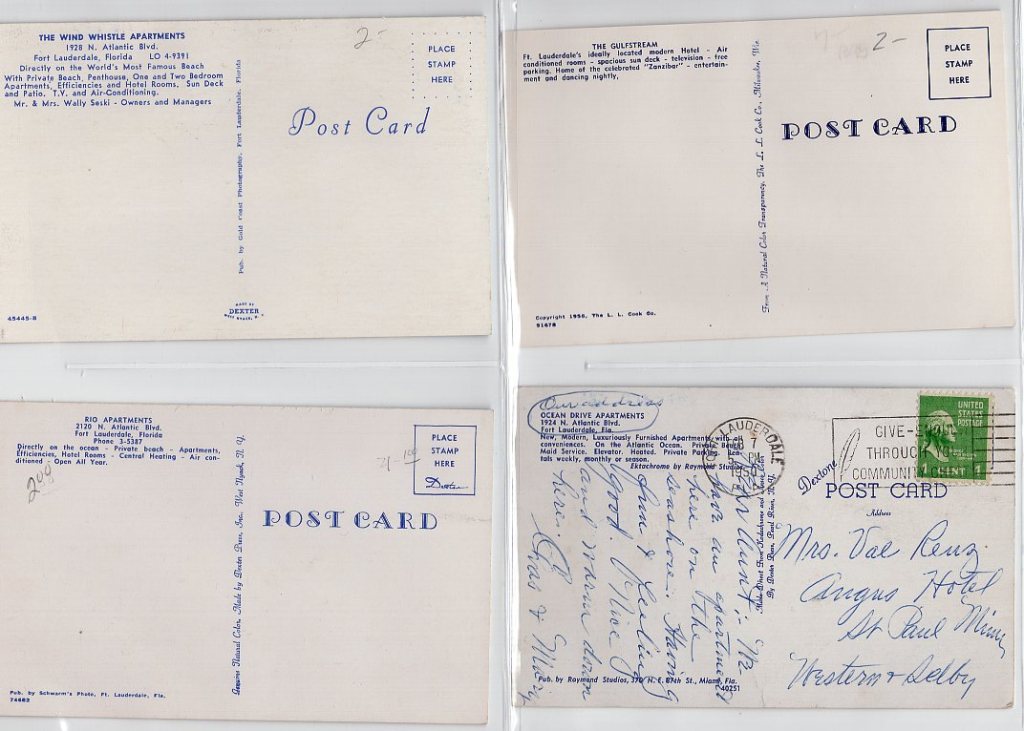 THE WIND WHISTLE APARTMENTS
1928 N. Atlantic Blvd.
Fort Lauderdale, Florida LO 4-9391
Directly on the World's Most Famous Beach
With Private Beach, Penthouse, One and Two Bedroom
Apartments, Efficiencies and Hotel Rooms, Sun Deck
and Patio. T.V. and Air-Conditioning.
Mr. & Mrs. Wally Seski - Owners and Managers
2-
PLACE
STAMP
HERE
Post Card
Pub. by Gold Coast Photography, Fort Lauderdale, Florida
MADE BY
DEXTER
WEST NYACK, N. Y.
45445-B
THE GULFSTREAM
Ft. Lauderdale's ideally located modern Hotel - Air
conditioned rooms - spacious sun deck - television - free
parking. Home of the celebrated "Zanzibar" - entertain-
ment and dancing nightly.
2-
PLACE
STAMP
HERE
POST CARD
From A Natural Color Transparency, The L. L. Cook Co., Milwaukee, Wis.
Copyright 1956, The L. L. Cook Co.
91678
RIO APARTMENTS
2120 N. Atlantic Blvd.
Fort Lauderdale, Florida
Phone 3-5387
Directly on the ocean - Private beach - Apartments,
Efficiencies, Hotel Rooms - Central Heating - Air con-
ditioned - Open All Year.
200
PLACE
STAMP
HERE
Dexter
POST CARD
Genuine Natural Color, Made by Dexter Press, Inc., West Nyack, N. Y.
Pub. by Schwarm's Photo, Ft. Lauderdale, Fla.
74662
Our address
OCEAN DRIVE APARTMENTS
1924 N. Atlantic Blvd.
Fort Lauderdale, Fla.
New, Modern, Luxuriously Furnished Apartments with all
conveniences. On the Atlantic Ocean. Private Beach
Maid Service. Elevator. Heated. Private Parking.
tals weekly, monthly or season.
Ektachrome by Raymond Studios
LAUDERDALE
7
PM
GIVE
THROUGH
COMMUNITY
UNITED
STATES
POSTAGE
1 CENT 1
Dextone
POST CARD
Address
Made Direct From Kodachrome and
By Dexter Press, Pearl River, N. Y.
Aunt: We
have an apartment
here on the
seashore. Having
fun & feeling
good. Nice
and warm down
here.
Mrs. Val Renz
Angus Hotel
St Paul Minn
Western & Selby
Pub. by Raymond Studios, 370 N. E. 87th St., Miami, Fla.
40251